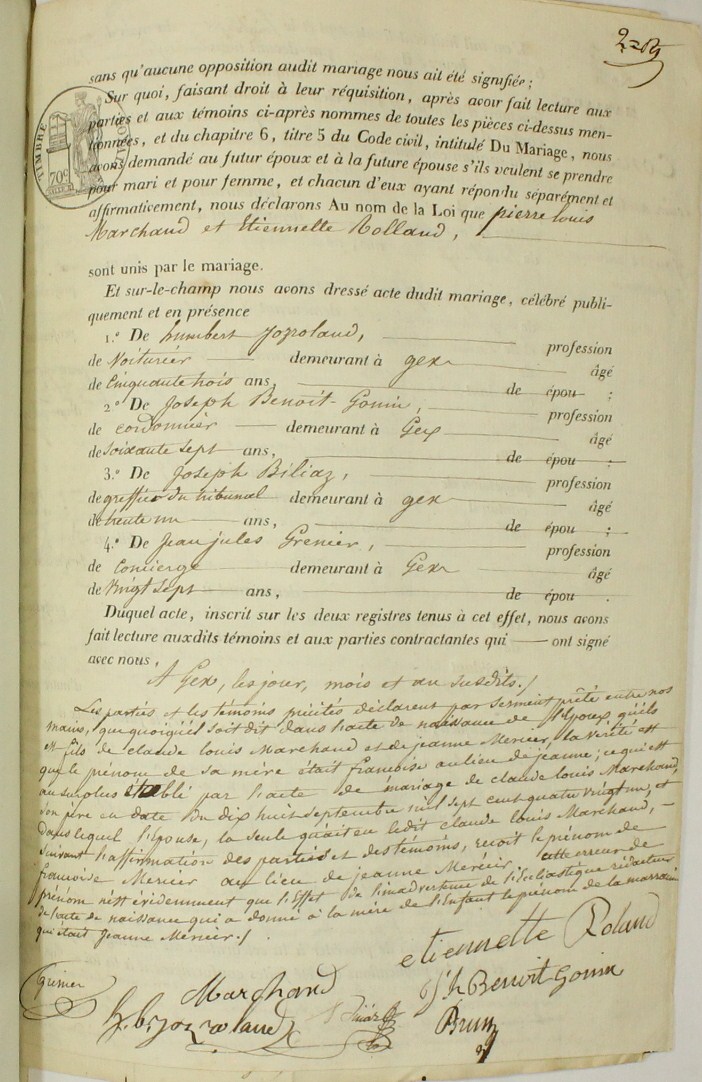 sans qu'aucune opposition audit mariage nous ait été signifiée ;
Sur quoi, faisant droit à leur réquisition, après avoir fait lecture aux
TIMBRE
70c
parties et aux témoins ci-après nommés de toutes les pièces ci-dessus men-
tionnées, et du chapitre 6, titre 5 du Code civil, intitulé Du Mariage, nous
avons demandé au futur époux et à la future épouse s'ils veulent se prendre
pour mari et pour femme, et chacun d'eux ayant répondu séparément et
affirmativement, nous déclarons Au nom de la Loi que pierre louis
Marchand et Etiennette Rolland,
sont unis par le mariage.
Et sur-le-champ nous avons dressé acte dudit mariage, célébré publi-
quement et en présence
1.° De humbert jozroland, profession
de Voiturier demeurant à gex âgé
de Cinquante trois ans, de épou ;
2.° De Joseph Benoit-Gonin, profession
de cordonnier demeurant à Gex âgé
de Soixante sept ans, de épou ;
3.° De Joseph Biliaz, profession
de greffier du tribunal demeurant à gex âgé
de trente un ans, de épou ;
4.° De Jean jules Grenier, profession
de Concierge demeurant à Gex âgé
de Vingt sept ans, de épou .
Duquel acte, inscrit sur les deux registres tenus à cet effet, nous avons
fait lecture auxdits témoins et aux parties contractantes qui ont signé
avec nous,
A Gex, les jour, mois et an susdits./
Les parties et les témoins précités déclarent par serment prêté entre nos
mains, que quoiqu'il soit dit dans l'acte de naissance de l'époux, qu'ils
est fils de claude louis Marchand et de jeanne Mercier, la vérité est
que le prénom de sa mère était françoise au lieu de jeanne ; ce qui est
au surplus établé par l'acte de mariage de claude louis Marchand,
son père en date du dix huit septembre mil sept cent quatre vingt un, et
dans lequel l'épouse, la seule qu'ait eu ledit claude louis Marchand,
suivant l'affirmation des parties et des témoins, reçoit le prénom de
françoise Mercier au lieu de jeanne Mercier. Cette erreur de
prénom n'est évidemment que l'effet de l'inadvertence de l'Eccliastique rédacteur
de l'acte de naissance qui a donné à la mère de l'Enfant le prénom de la marraine
qui était Jeanne Mercier./.
etiennette Roland
Marchand
Jh Benoit Gonin